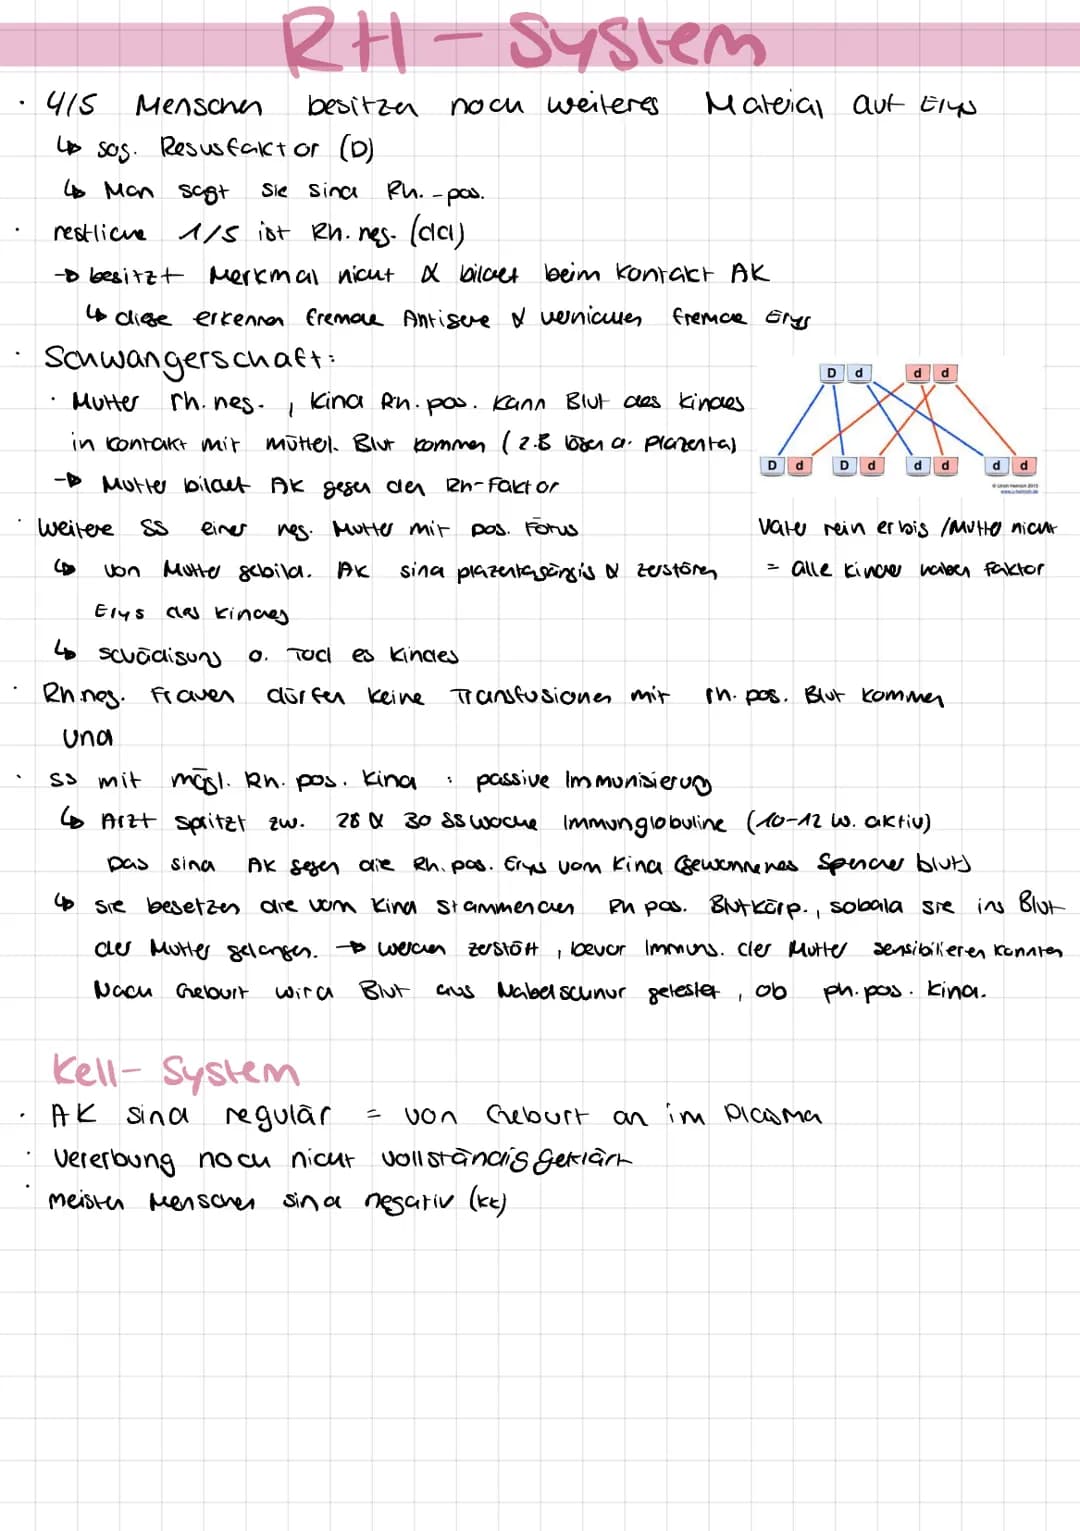 RH-System
· 4/5 Menschen besitzen noch weiteres Material auf Erys
↳ sog. Resusfaktor (D)
↳ Man sagt sie sind Rh.-pos.
· restliche 1/5 ist Rh. neg. (dd)
→ besitzt Merkmal nicht & bildet beim Kontakt AK
↳ diese erkennen fremde Antigene & vernichten fremde Erys
· Schwangerschaft:
· Mutter rh. neg., Kind Rh. pos. kann Blut des Kindes
in Kontakt mit müttel. Blut kommen (z.B lösen d. Plazenta)
→ Mutter bildet AK gegen den Rh-Faktor
D d d d
D d D d d d d d
© Ulrich Helmich 2015
www.u-helmich.de
Vater rein erbig /Mutter nicht
= alle Kinder haben Faktor
· weitere SS einer neg. Mutter mit pos. Fötus
↳ von Mutter gebild. AK sind plazentagängig & zerstören
Erys des Kindes
↳ Schädigung o. Tod es Kindes
· Rh.neg. Frauen dürfen keine Transfusionen mit rh. pos. Blut kommen
und
· SS mit mögl. Rh. pos. Kind : passive Immunisierung
↳ Arzt spritzt zw. 28 & 30 SS woche Immunglobuline (10-12 W. aktiv)
Das sind AK gegen die Rh. pos. Erys vom Kind (gewonnenes Spender blut)
↳ sie besetzen die vom Kind stammenden Rh pos. Blutkörp., sobald sie ins Blut
der Mutter gelangen. → werden zerstört, bevor Immuns. der Mutter sensibilieren konnten
Nach Geburt wird Blut aus Nabelschnur getestet, ob rh. pos. Kind.
Kell-System
· AK sind regulär = von Geburt an im Plasma
· Vererbung noch nicht vollständig geklärt
· meisten Menschen sind negativ (kk)